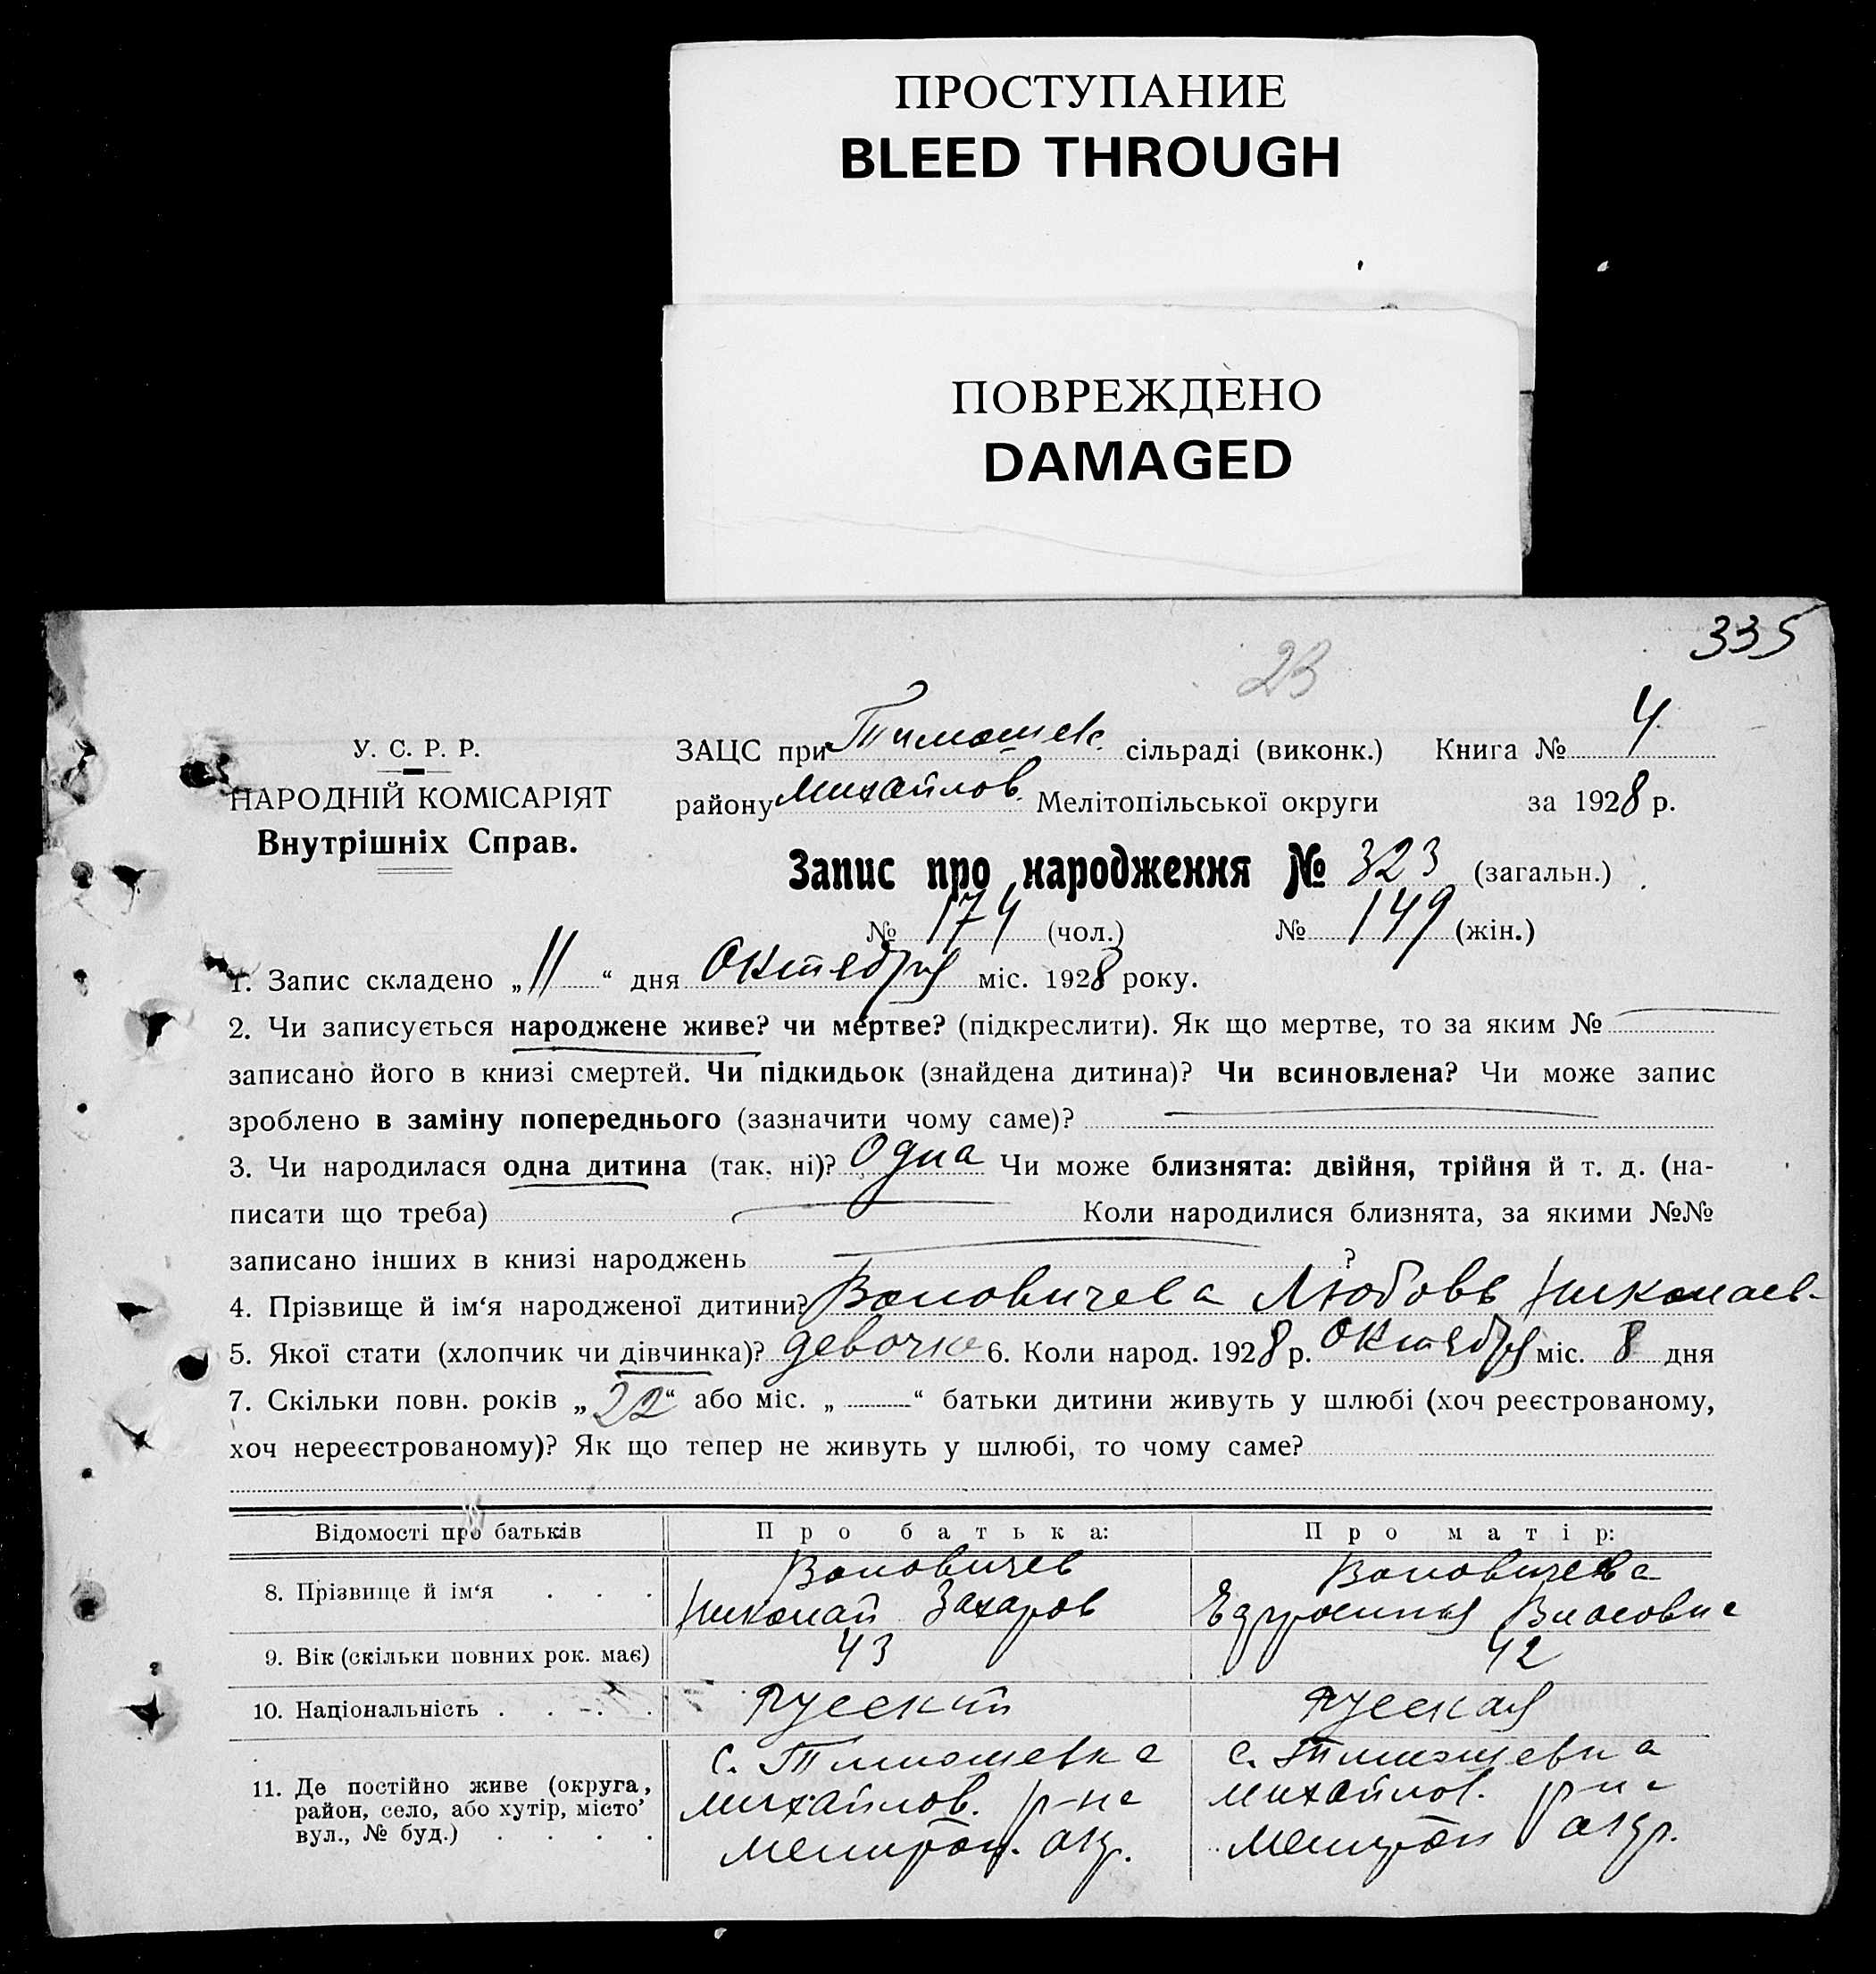 ПРОСТУПАНИЕ
BLEED THROUGH
ПОВРЕЖДЕНО
DAMAGED
335
23
У. С. Р. Р.
НАРОДНІЙ КОМІСАРІЯТ
Внутрішніх Справ.
ЗАЦС при Тимошев. сільраді (виконк.) Книга № 4
району Михайлов. Мелітопільської округи за 1928 р.
Запис про народження № 323 (загальн.)
№ 174 (чол.) № 149 (жін.)
1. Запис складено „11“ дня Октября міс. 1928 року.
2. Чи записується народжене живе? чи мертве? (підкреслити). Як що мертве, то за яким №
записано його в книзі смертей. Чи підкидьок (знайдена дитина)? Чи всиновлена? Чи може запис
зроблено в заміну попереднього (зазначити чому саме)?
3. Чи народилася одна дитина (так, ні)? Одна Чи може близнята: двійня, трійня й т. д. (на-
писати що треба) Коли народилися близнята, за якими №№
записано інших в книзі народжень ?
4. Прізвище й ім‘я народженої дитини? Воловичева Любовь Николаев-
5. Якої стати (хлопчик чи дівчинка)? девочка 6. Коли народ. 1928 р. Октября міс. 8 дня
7. Скільки повн. років „22“ або міс. „ “ батьки дитини живуть у шлюбі (хоч реєстрованому,
хоч нереєстрованому)? Як що тепер не живуть у шлюбі, то чому саме?
Відомості про батьків Про батька: Про матір:
8. Прізвище й ім‘я Воловичев Николай Захаров Воловичева Ефросинья Власовна
9. Вік (скільки повних рок. має) 43 42
10. Національність Русский Русская
11. Де постійно живе (округа, с. Тимошевка с. Тимошевка
район, село, або хутір, місто’ Михайлов. р-на Михайлов. р-на
вул., № буд.) Мелитоп. окр. Мелитоп окр.